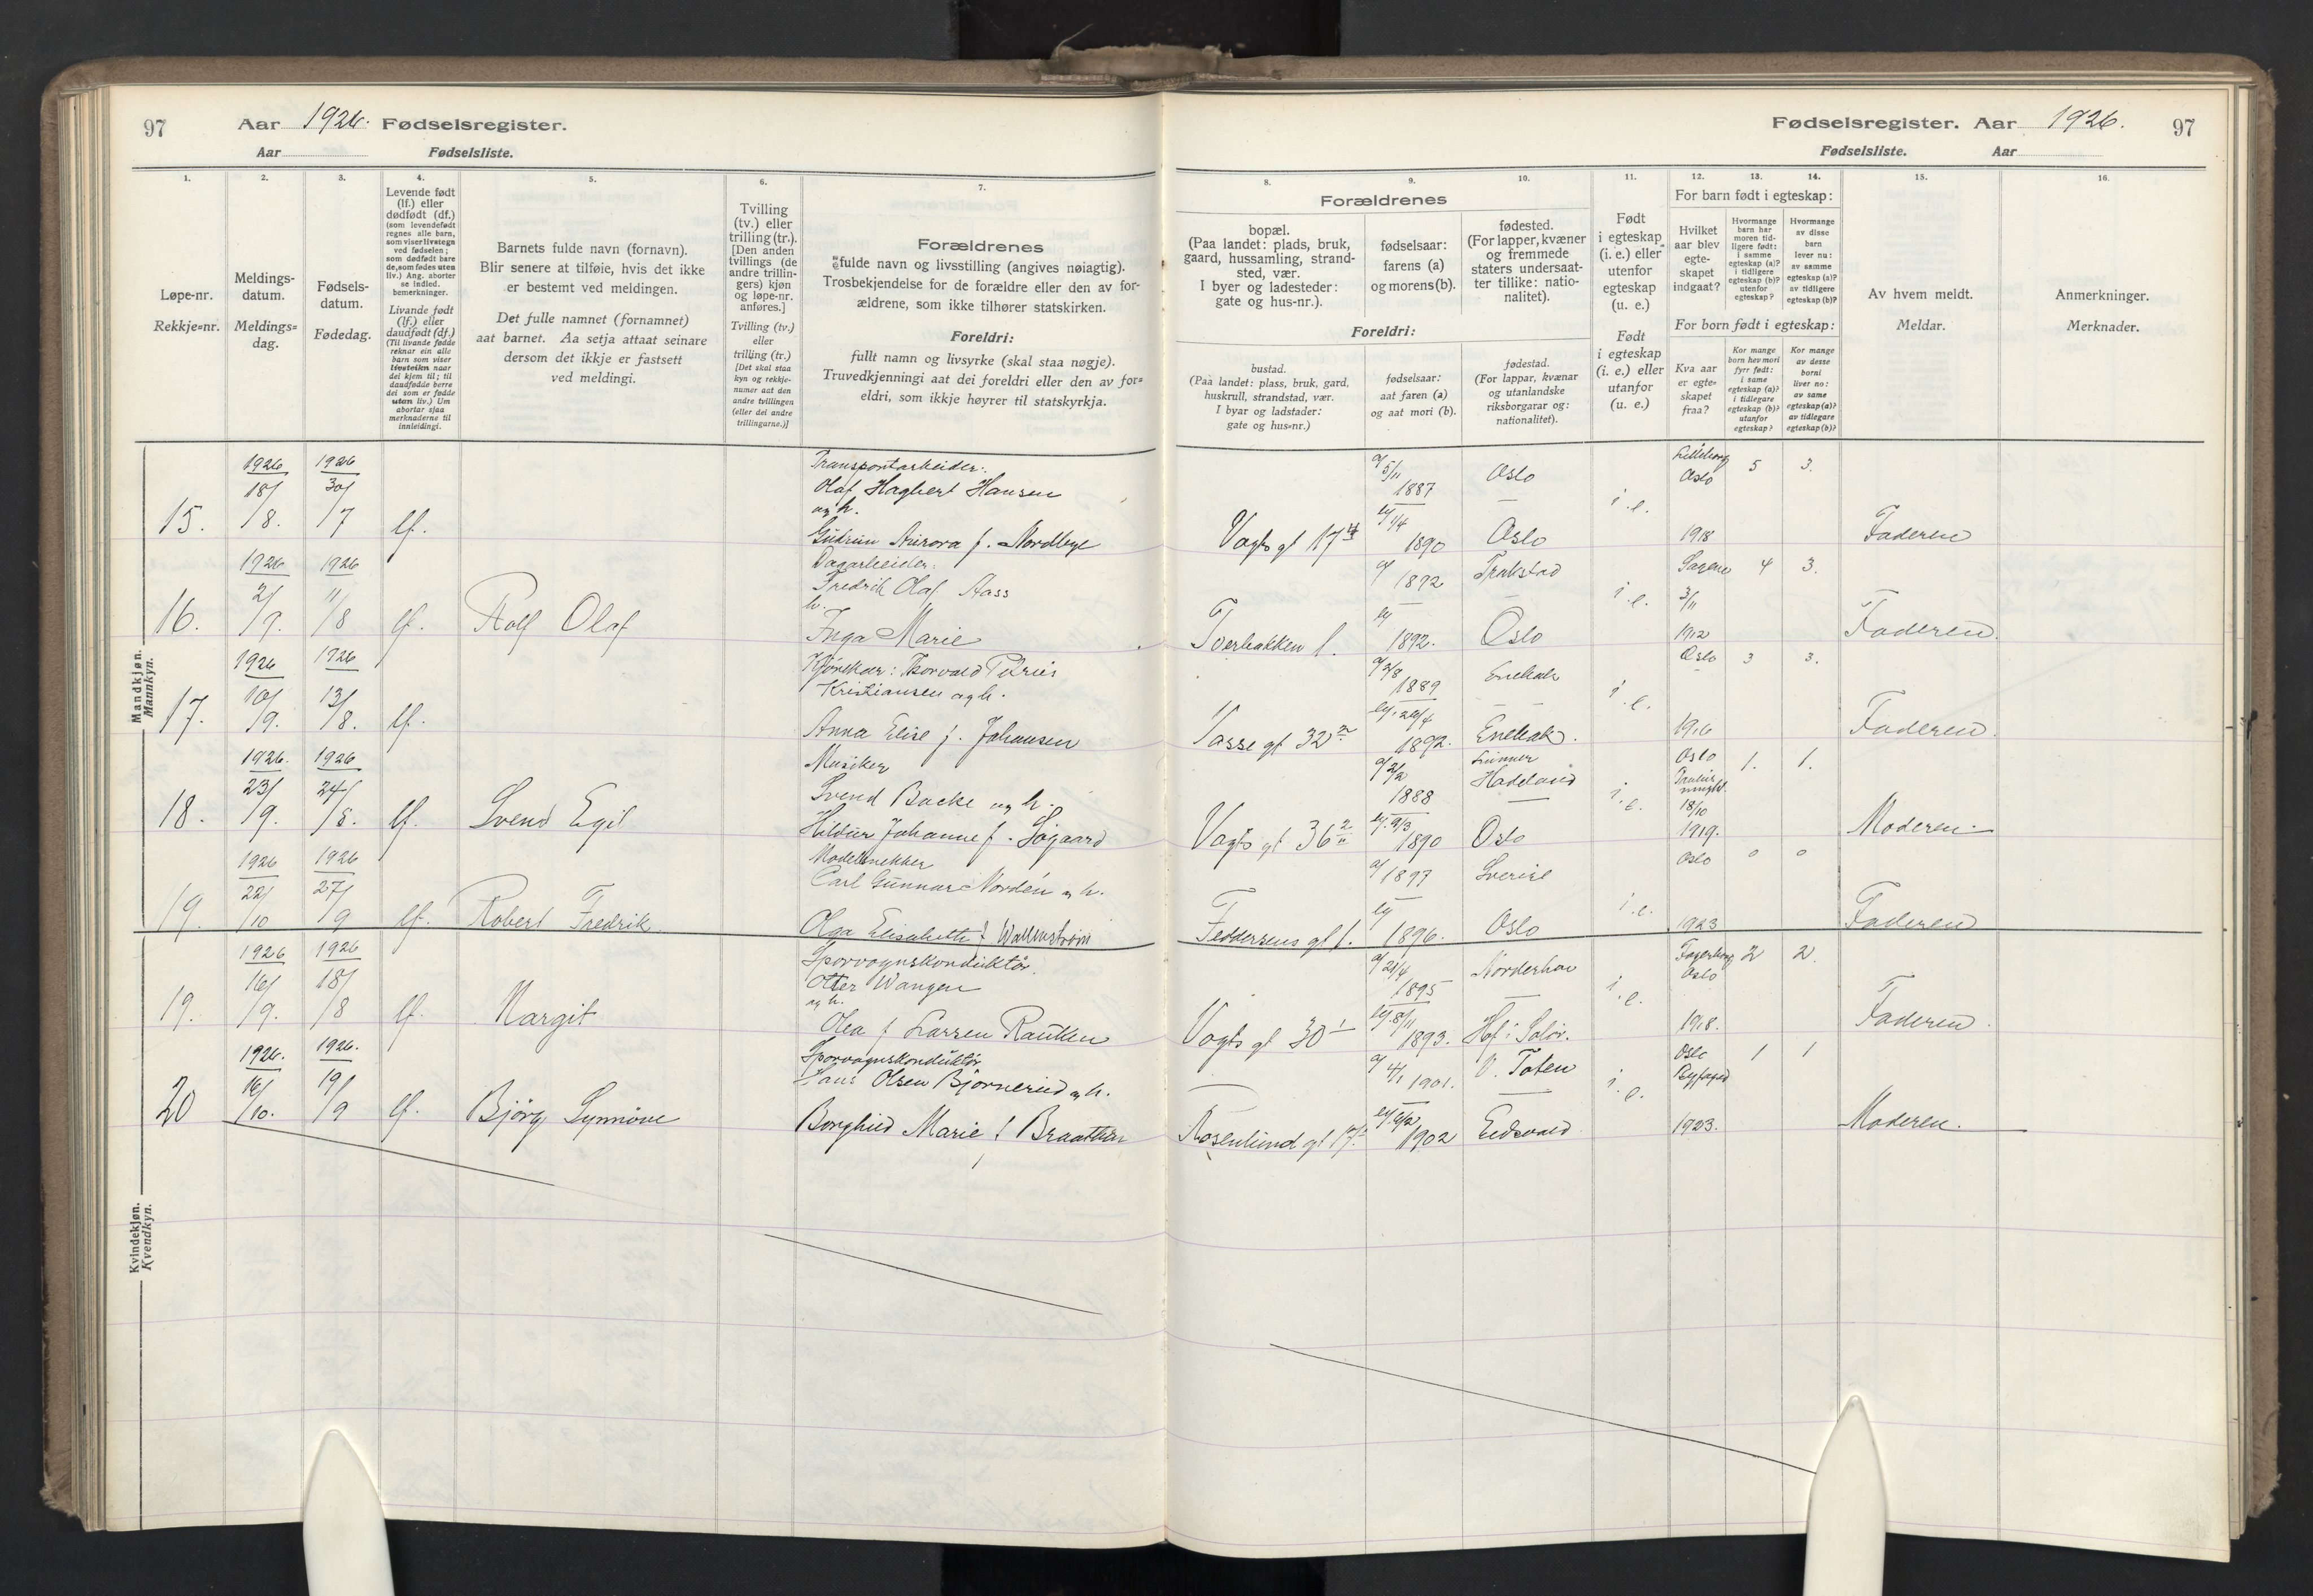 97 Aar 1926. Fødselsregister.
Aar Fødselsliste.
1. 2. 3. 4. 5. 6. 7.
Løpe-nr.
Rekkje=nr.
Meldings-
datum.
Meldings=
dag.
Fødsels-
datum.
Fødedag.
Levende født
(lf.) eller
dødfødt (df.)
(som levendefødt
regnes alle barn,
som viser livstegn
ved fødselen;
som dødfødt bare
de, som fødes uten
liv.) Ang. aborter
se indled.
bemerkninger.
Livande født
(lf.) eller
daudfødt (df.)
(Til livande fødde
reknar ein alle
barn som viser
livsteikn naar
dei kjem til; til
daudfødde berre
dei som er fødde
utan liv.) Um
abortar sjaa
merknaderne til
innleidingi.
Barnets fulde navn (fornavn).
Blir senere at tilføie, hvis det ikke
er bestemt ved meldingen.
Det fulle namnet (fornamnet)
aat barnet. Aa setja attaat seinare
dersom det ikkje er fastsett
ved meldingi.
Tvilling
(tv.) eller
trilling (tr.).
[Den anden
tvillings (de
andre trillin-
gers) kjøn
og løpe-nr.
anføres.]
Tvilling (tv.)
eller
trilling (tr.)
[Det skal staa
kyn og rekkje-
numer aat den
andre tvillingen
(eller dei andre
trillingarne.)]
Forældrenes
fulde navn og livsstilling (angives nøiagtig).
Trosbekjendelse for de forældre eller den av for-
ældrene, som ikke tilhører statskirken.
Foreldri:
fullt namn og livsyrke (skal staa nøgje).
Truvedkjenningi aat dei foreldri eller den av for=
eldri, som ikkje høyrer til statskyrkja.
Mandkjøn.
Mannkyn.
15. 1926 18/8. 1926 30/7 lf.
Transportarbeider.
Olaf Hagbert Hansen
og h.
Gudrun Aurora f. Nordbye
16. 1926 2/9. 1926 11/8 lf. Rolf Olaf
Dagarbeider.
Fredrik Olaf Aass
h.
Inga Marie
17. 1926 10/9. 1926 13/8. lf.
Kjørekar: Thorvald Petrus
Kristiansen og h.
Anna Elise f. Johansen
18. 1926. 23/9. 1926 24/8. lf. Svend Egil
Musiker
Svend Backe og h.
Hildur Johanne f. Søgaard
19. 1926 22/10 1926 27/9 lf. Robert Fredrik
Modelsnekker
Carl Gunnar Nordén og h.
Olga Elisabeth f Wallenstrøm
Kvindekjøn.
Kvendkyn.
19. 1926 16/9. 1926 18/8 lf. Margit
Sporvognskonduktør.
Otter Wangen
og h.
Olea f Larsen Rauken
20 1926. 16/10. 1926. 19/9 lf. Bjørg Synnøve
Sporvognskonduktør
Hans Olsen Bjørnerud og h.
Borghild Marie f Braathen
Fødselsregister. Aar 1926. 97
Fødselsliste. Aar
8. 9. 10. 11. 12. 13. 14. 15. 16.
Forældrenes
bopæl.
(Paa landet: plads, bruk,
gaard, hussamling, strand-
sted, vær.
I byer og ladesteder:
gate og hus-nr.).
fødselsaar:
farens (a)
og morens (b).
fødested.
(For lapper, kvæner
og fremmede
staters undersaat-
ter tillike: natio-
nalitet).
Foreldri:
bustad.
(Paa landet: plass, bruk, gard,
huskrull, strandstad, vær.
I byar og ladstader:
gate og hus=nr.)
fødselsaar:
aat faren (a)
og aat mori (b).
fødestad.
(For lappar, kvænar
og utanlandske
riksborgarar og:
nationalitet).
Født
i egteskap
(i. e.) eller
utenfor
egteskap
(u. e.)
Født
i egteskap
(i. e.) eller
utanfor
(u. e.)
For barn født i egteskap:
Hvilket
aar blev
egte-
skapet
indgaat?
Hvormange
barn har
moren tid-
ligere født:
i samme
egteskap (a)?
i tidligere
egteskap (b)?
utenfor
egteskap?
Hvormange
av disse
barn
lever nu:
av samme
egteskap (a)?
av tidligere
egteskap (b)?
For born født i egteskap:
Kva aar
er egte=
skapet
fraa?
Kor mange
born hev mori
fyrr født:
i same
egteskap (a)?
i tidlegare
egteskap (b)?
utanfor
egteskap?
Kor mange
av desse
borni
liver no:
av same
egteskap (a)?
av tidlegare
egteskap (b)?
Av hvem meldt.
Meldar.
Anmerkninger.
Merknader.
Vogts gt 17 4
a/ 5/11 1887 Oslo
b/ 1/4 1890 Oslo
i. e.
Lilleborg Oslo 1918 5 3. Faderen
Torbakken 1.
a/ 1892 Trøkstad
b/ 1892. Oslo
i. e.
Sagene 3/11 1912 4 3. Faderen.
Vasse gt 32
a/ 3/8 1889 Enebak
b/ 26/4 1892. Enebak.
i. e.
Oslo 1916 3 3. Faderen.
Vogts gt 36 2
a/ 2/2 1888 Lunner Hadeland
b/ 9/3 1890 Oslo
i. e.
Oslo 18/10 1919. 1. 1. Moderen.
Feddersens gt 1.
a/ 1897 Sverige
b/ 1896. Oslo
i. e.
Oslo 1923 0 0 Faderen
Vogts gt 30 1
a/ 21/4 1895 Norderhov
b/ 8/11 1893. Hof i Solør.
i. e.
Fagerborg Oslo 1918. 2 2. Faderen.
Rosenlund gt 17.
a/ 4/1 1901. V. Toten
b/ 6/2 1902 Eidsvold
i. e.
Oslo Byfoged 1923. 1 1 Moderen.